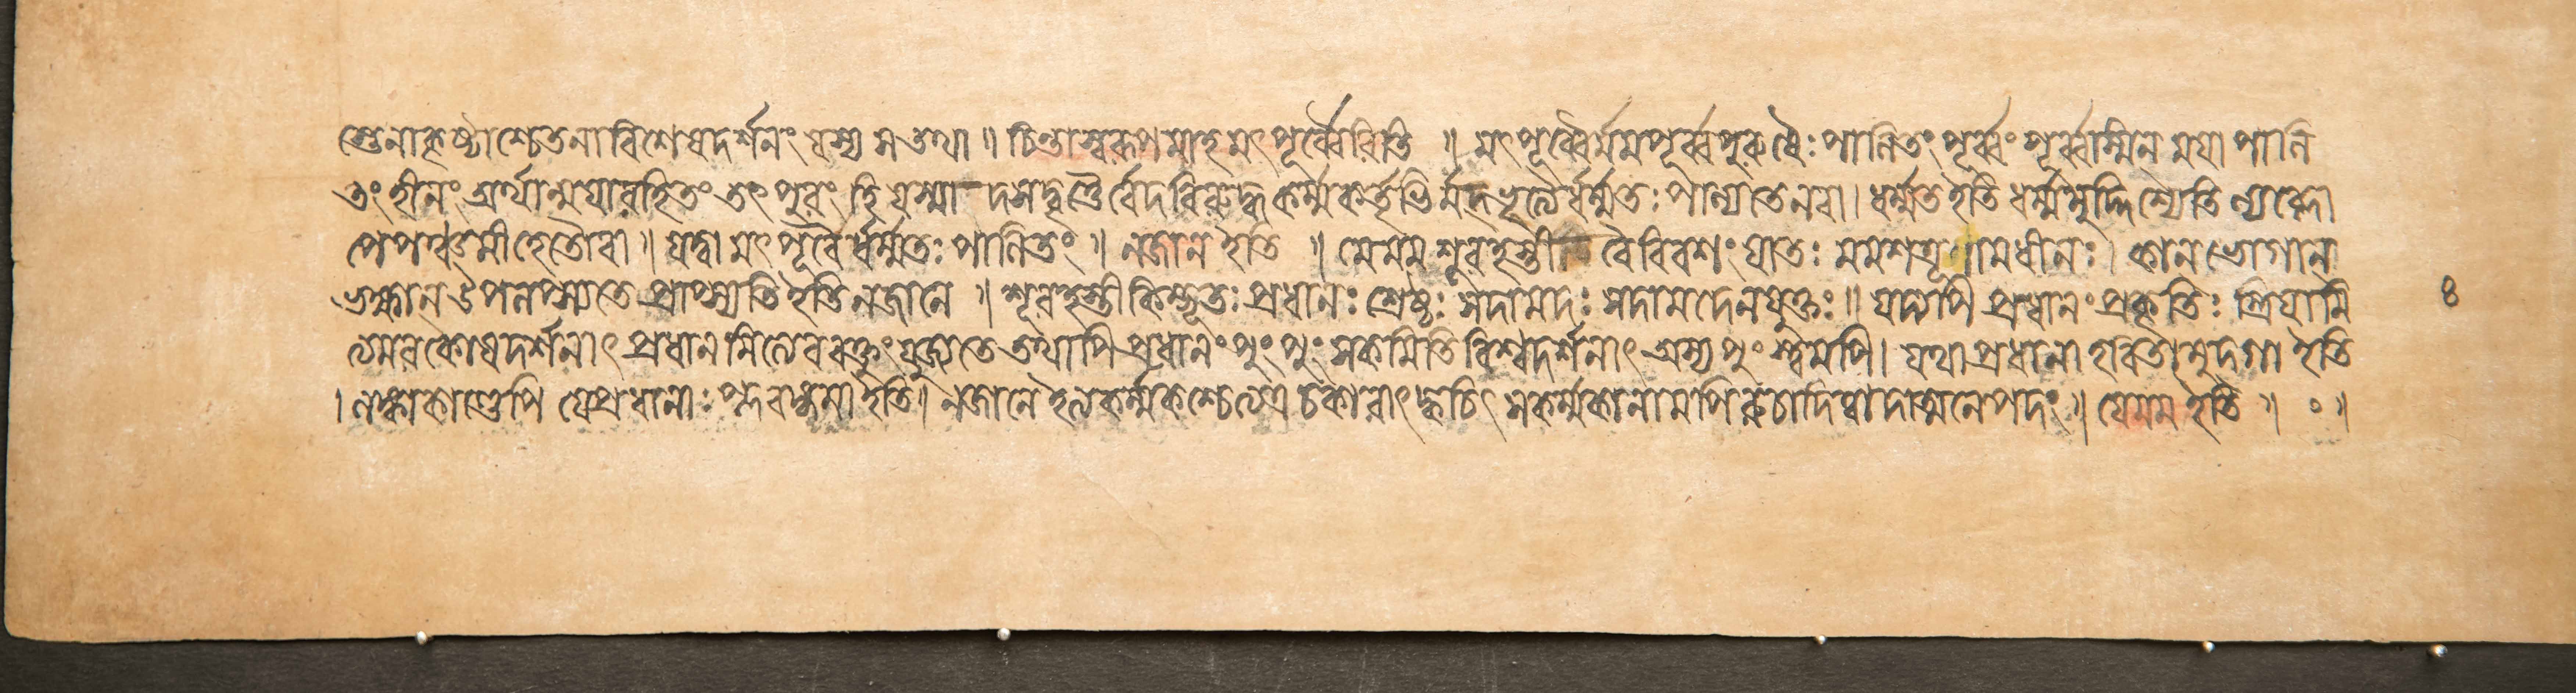 ন্তেনাকৃষ্টাশ্চেতনাবিশেষদর্শনং যস্য স তথা ॥ চিন্তাস্বরূপমাহ মৎপূর্ব্বৈরিতি ॥ মৎপূর্ব্বৈর্মমপূর্ব্বপুরুষৈঃ পালিতং পূর্ব্বং পূর্ব্বস্মিন্ ময়া পালি
তং হীনং অর্থান্ময়ারহিতং তৎ পুরং হি যস্মা দসদ্বৃত্তৈর্বেদবিরুদ্ধকর্ম্মকর্তৃভির্মদ্ভৃত্যৈর্ধর্ম্মতঃ পাল্যতে নবা । ধর্ম্মত ইতি ধর্ম্মমুদ্দিশ্যেতি ল্যব্লো
পে পঞ্চমী হেতৌ বা ॥ যদ্বা মৎপূর্বৈর্ধর্ম্মতঃ পালিতং ॥ নজান ইতি ॥ মে মম শূরহস্তী বৈরিবশং যাতঃ মম শত্রূণামধীনঃ । কান্ ভোগান্
ভক্ষ্যান্ উপলপ্স্যতে প্রাপ্স্যতি ইতি নজানে ॥ শূরহস্তী কিম্ভূতঃ প্রধানঃ শ্রেষ্ঠঃ সদামদঃ সদামদেনযুক্তঃ ॥ যদ্যপি প্রধানং প্রকৃতিঃ স্ত্রিয়ামি
ত্যমরকোষদর্শনাৎ প্রধানমিত্যেব বক্তুং যুজ্যতে তথাপি প্রধানং পুং পুং সকমিতি বিশ্বদর্শনাৎ অস্য পুং স্ত্বমপি । যথা প্রধানা হরিতামুদগা ইতি
। লঙ্কাকাণ্ডেপি যে প্রধানাঃ প্লবঙ্গমা ইতি ॥ নজানে ইত্যকর্ম্মকশ্চেত্যত্র চকারাৎ ক্বচিৎ সকর্ম্মকানামপি রুচাদিত্বাদাত্মনেপদং ॥ যে মম ইতি ॥ ০ ॥
৪